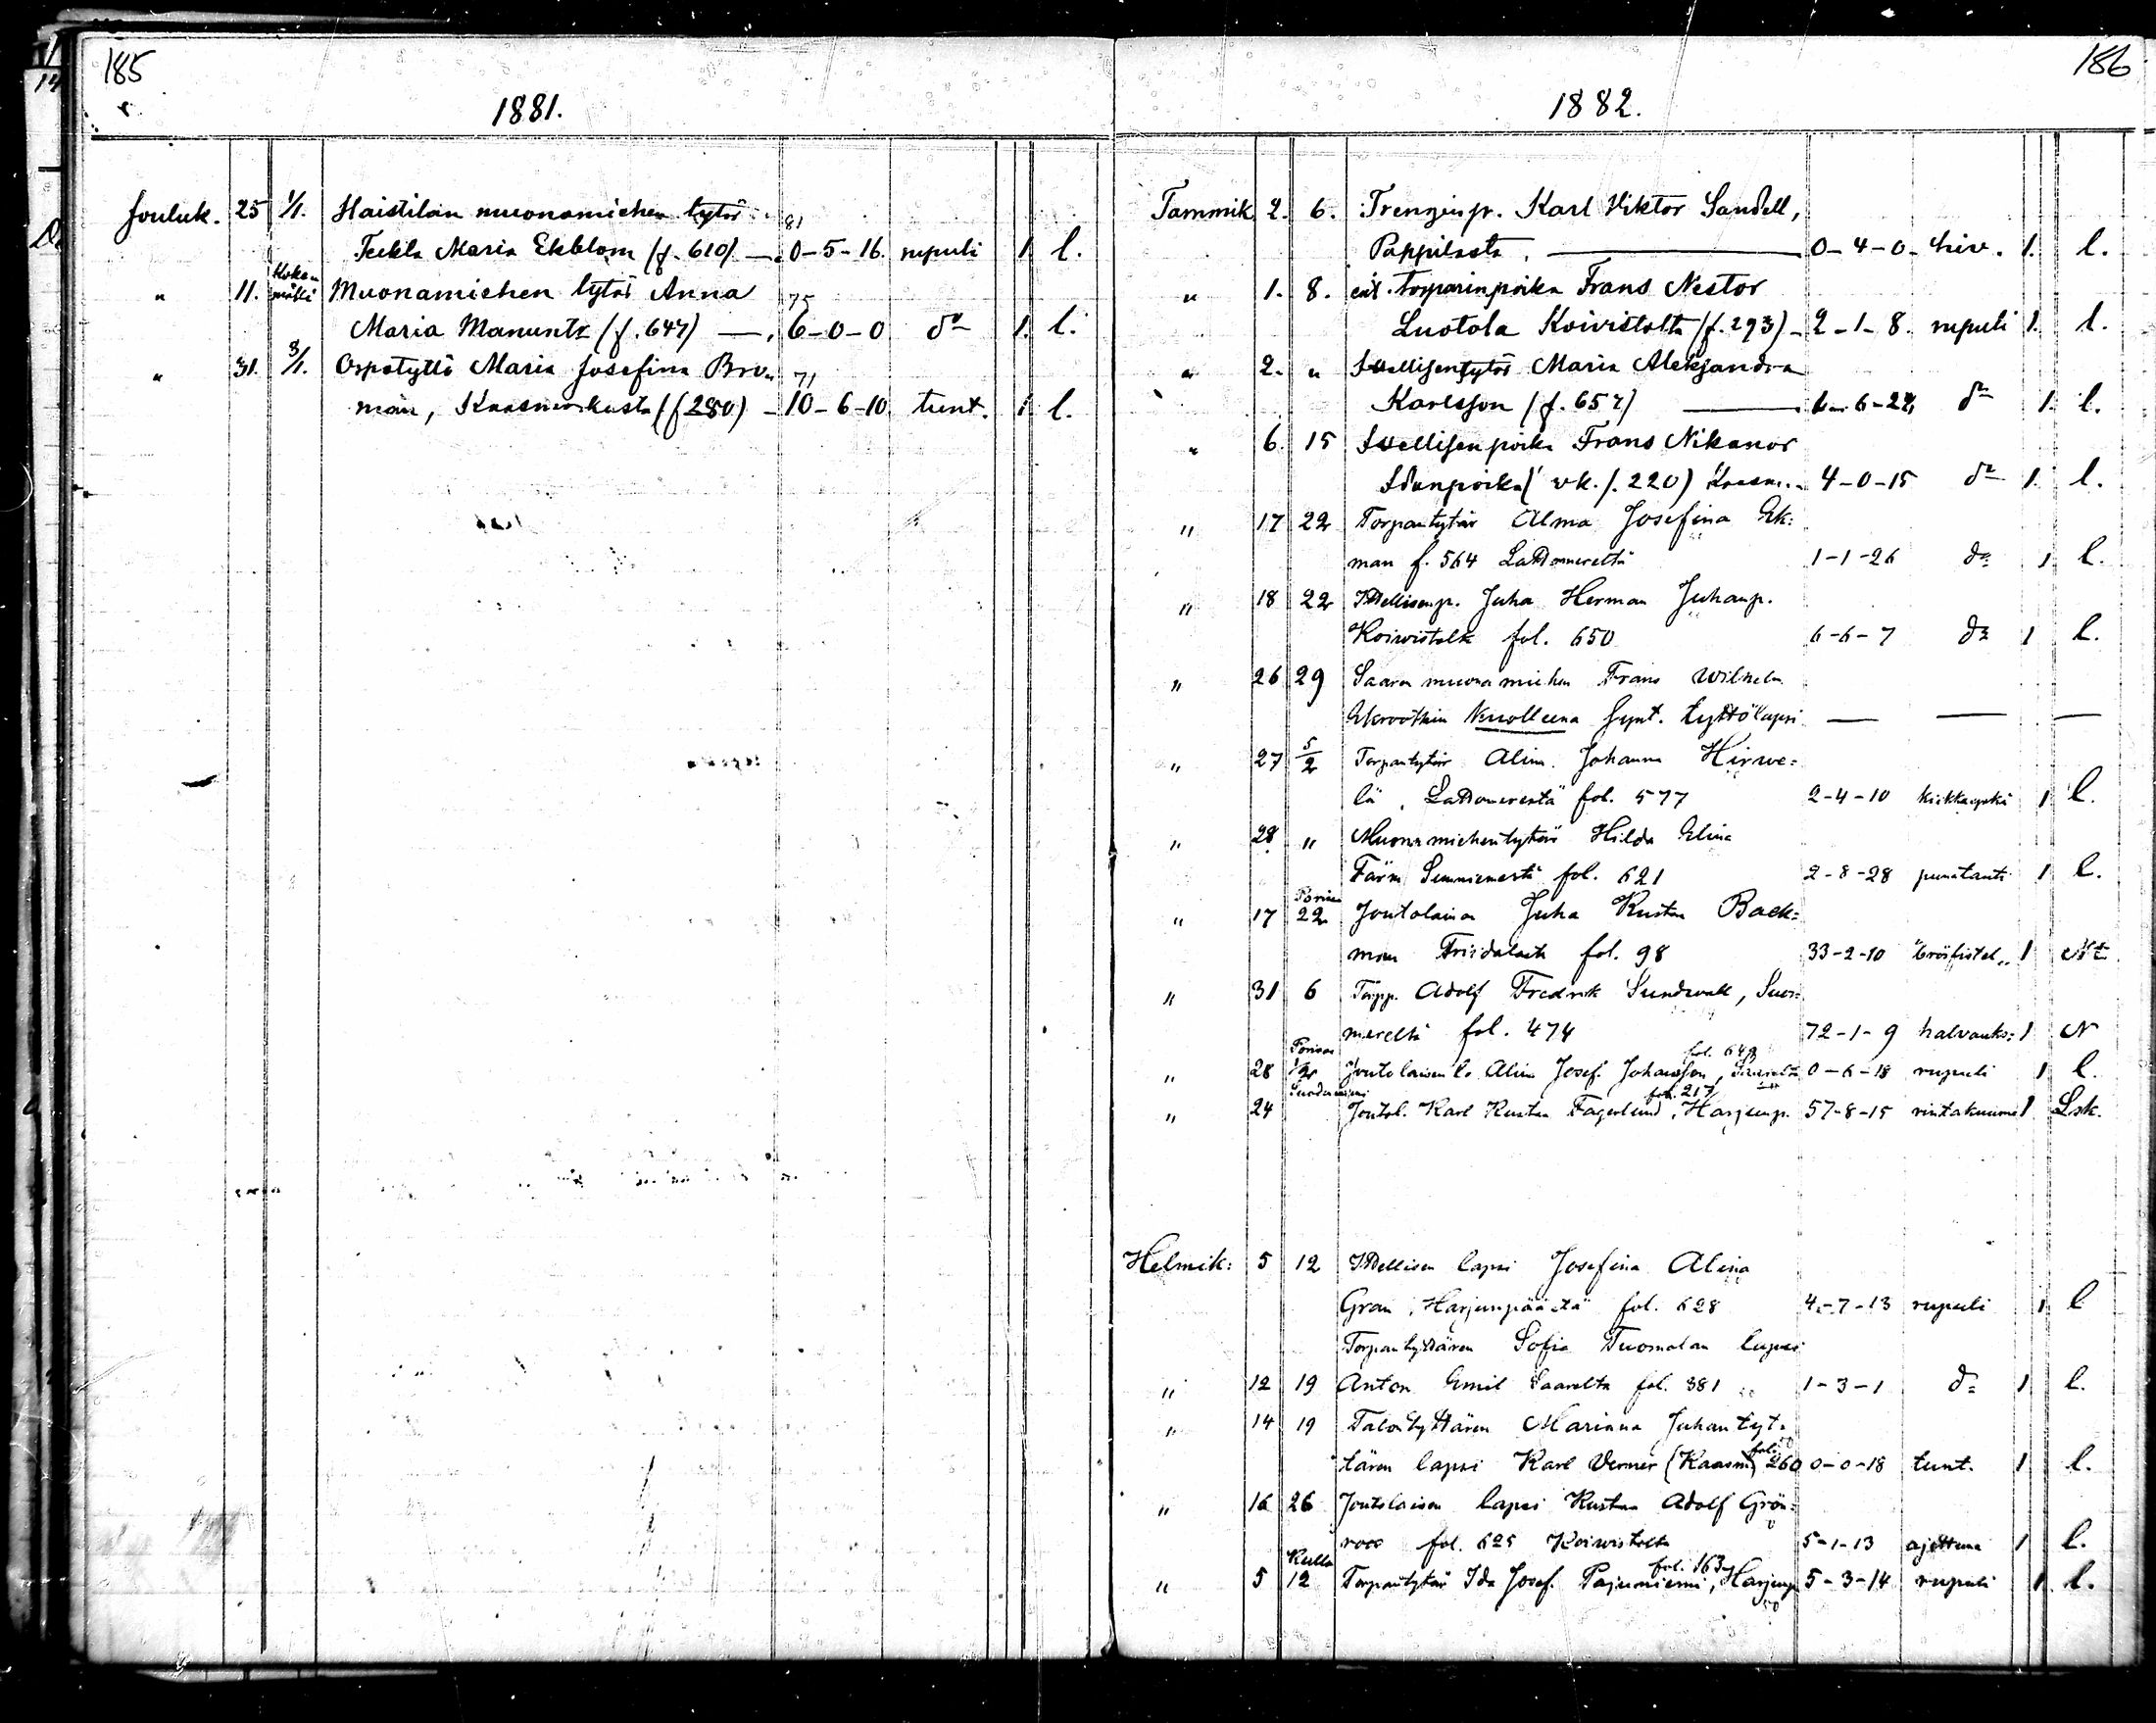 185
1881.
Jouluk. 25 1/1. Haistilan muonamiehen tytär 81
Teckla Maria Ekblom (f. 610) — 0-5-16. rupuli 1 l.
" 11. Kokemäki Muonamiehen tytär Anna 75
Maria Manuntr (f. 647) —, 6-0-0 do 1. l.
" 31. 8/1. Orpotyttö Maria Josefina Bru„ 71
man, Kaasmarkusta (f 280) - 10-6-10 tunt. 1 l.
186
1882.
Tammik 2. 6. Trengin p. Karl Viktor Sandell,
Pappilasta. — 0-4-0- hiv. 1. l.
" 1. 8. Torparinpoika Frans Nestor
Luotola Koivistolta (f. 293) - 2-1-8. rupuli 1. l.
" 2. " Itsellisentytär Maria Aleksandra
Karlsson (f. 657) — 6-6-24 do 1. l.
" 6. 15 Itsellisenpoika Frans Nikanor
Idanpoika (vk. f. 220) Kaasm.. 4-0-15 do 1. l.
" 17 22 Torpantytär Alma Josefina Ek:
man f. 564 Lattomereltä 1-1-26 do 1 l.
" 18 22 Itsellisenp. Juha Herman Juhanp.
Koivistolta fol. 650 6-6-7 do 1 l.
" 26 29 Saaren muonamiehen Frans Wilhelm
Ekroothin kuolleena synt. tyttölapsi — — —
" 27 5/2 Torpantytär Alina Johanna Hirwe:
lä, Lattomerestä fol. 577 2-4-10 1 l.
" 28 " Muonamiehentytär Hilda Elina
Färm Sunniemestä fol. 621 2-8-28 punatauti 1 l.
" 17 Porissa 22 Joutolainen Juha Kustaa Back:
man Friidalasta fol. 98 33-2-10 1 Nt
" 31 6 Torpp. Adolf Fredrik Sundwall, Suos:
mereltä fol. 474 72-1-9 halvauks: 1 N
" 28 Porissa 1/2 Joutolaisen l. Alina Josef. Johansson, fol. 649 0-6-18 rupuli 1 l.
" 24 Joutol. Karl Kustaa Fagerlund, fol. 217 Harjunp. 57-8-15 rintakuume 1 Lsk.
Helmik: 5 12 Itsellisen lapsi Josefina Alina
Gran, Harjunpäästä fol. 628 4-7-13 rupuli 1 l
Torpantyttären Sofia Tuomolan lapsi
" 12 19 Anton Emil Saarelta fol. 381 1-3-1 do 1 l.
" 14 19 Talontyttären Marianna Juhantyt.
tären lapsi Karl Verner (Kaasm) fol. 260 0-0-18 tunt. 1 l.
" 16 26 Joutolaisen lapsi Kustaa Adolf Grön:
roos fol. 625 Koivistolta 5-1-13 ajettuma 1 l.
" 5 Kulla 12 Torpantytär Ida Josef. Pajuniemi, fol. 163 Harjunp 5-3-14 rupuli 1 l.